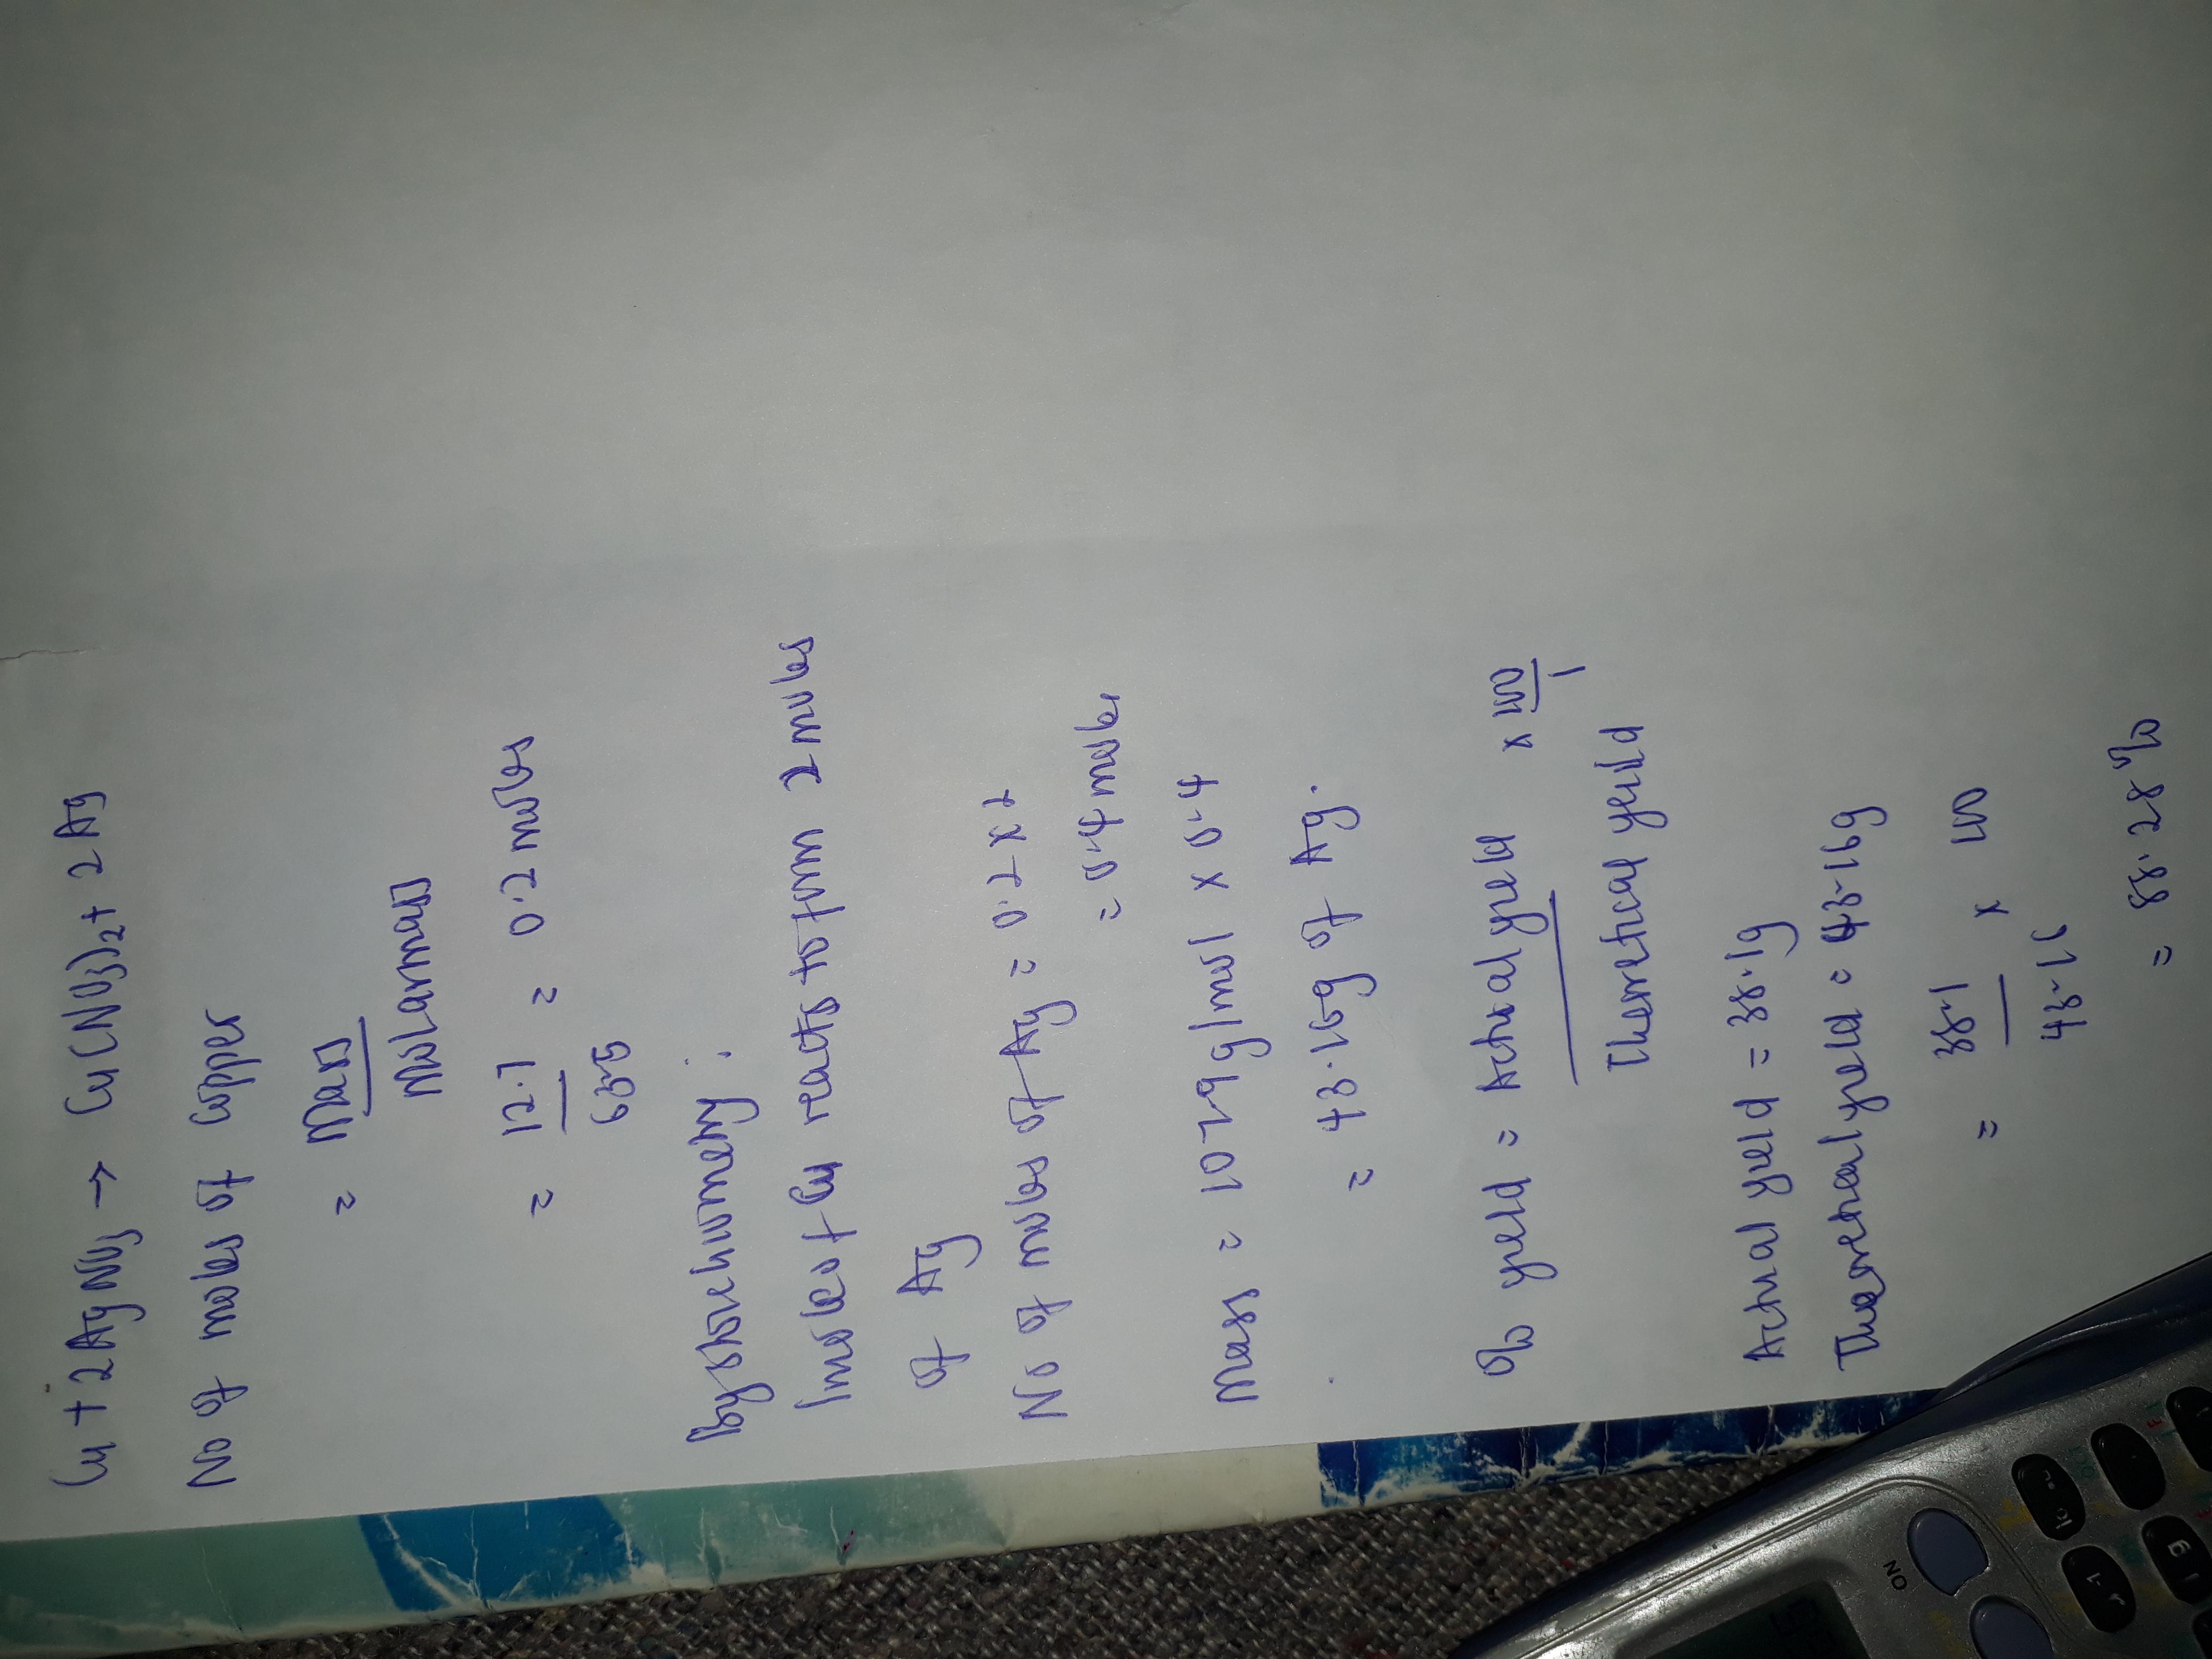 Cu + 2AgNO3 → Cu(NO3)2 + 2Ag
No of moles of Copper
= Mass
Molarmass
= 12.7 = 0.2 moles
63.5
By stoichiometry :
1 mole of Cu reacts to form 2 moles
of Ag
No of moles of Ag = 0.2 x 2
= 0.4 moles
Mass = 107.9 g/mol x 0.4
= 43.16g of Ag.
% yield = Actual yield x 100
1
Theoretical yeild
Actual yield = 38.1g
Theoretical yield = 43.16g
= 38.1 x 100
43.16
= 88.28%
ON